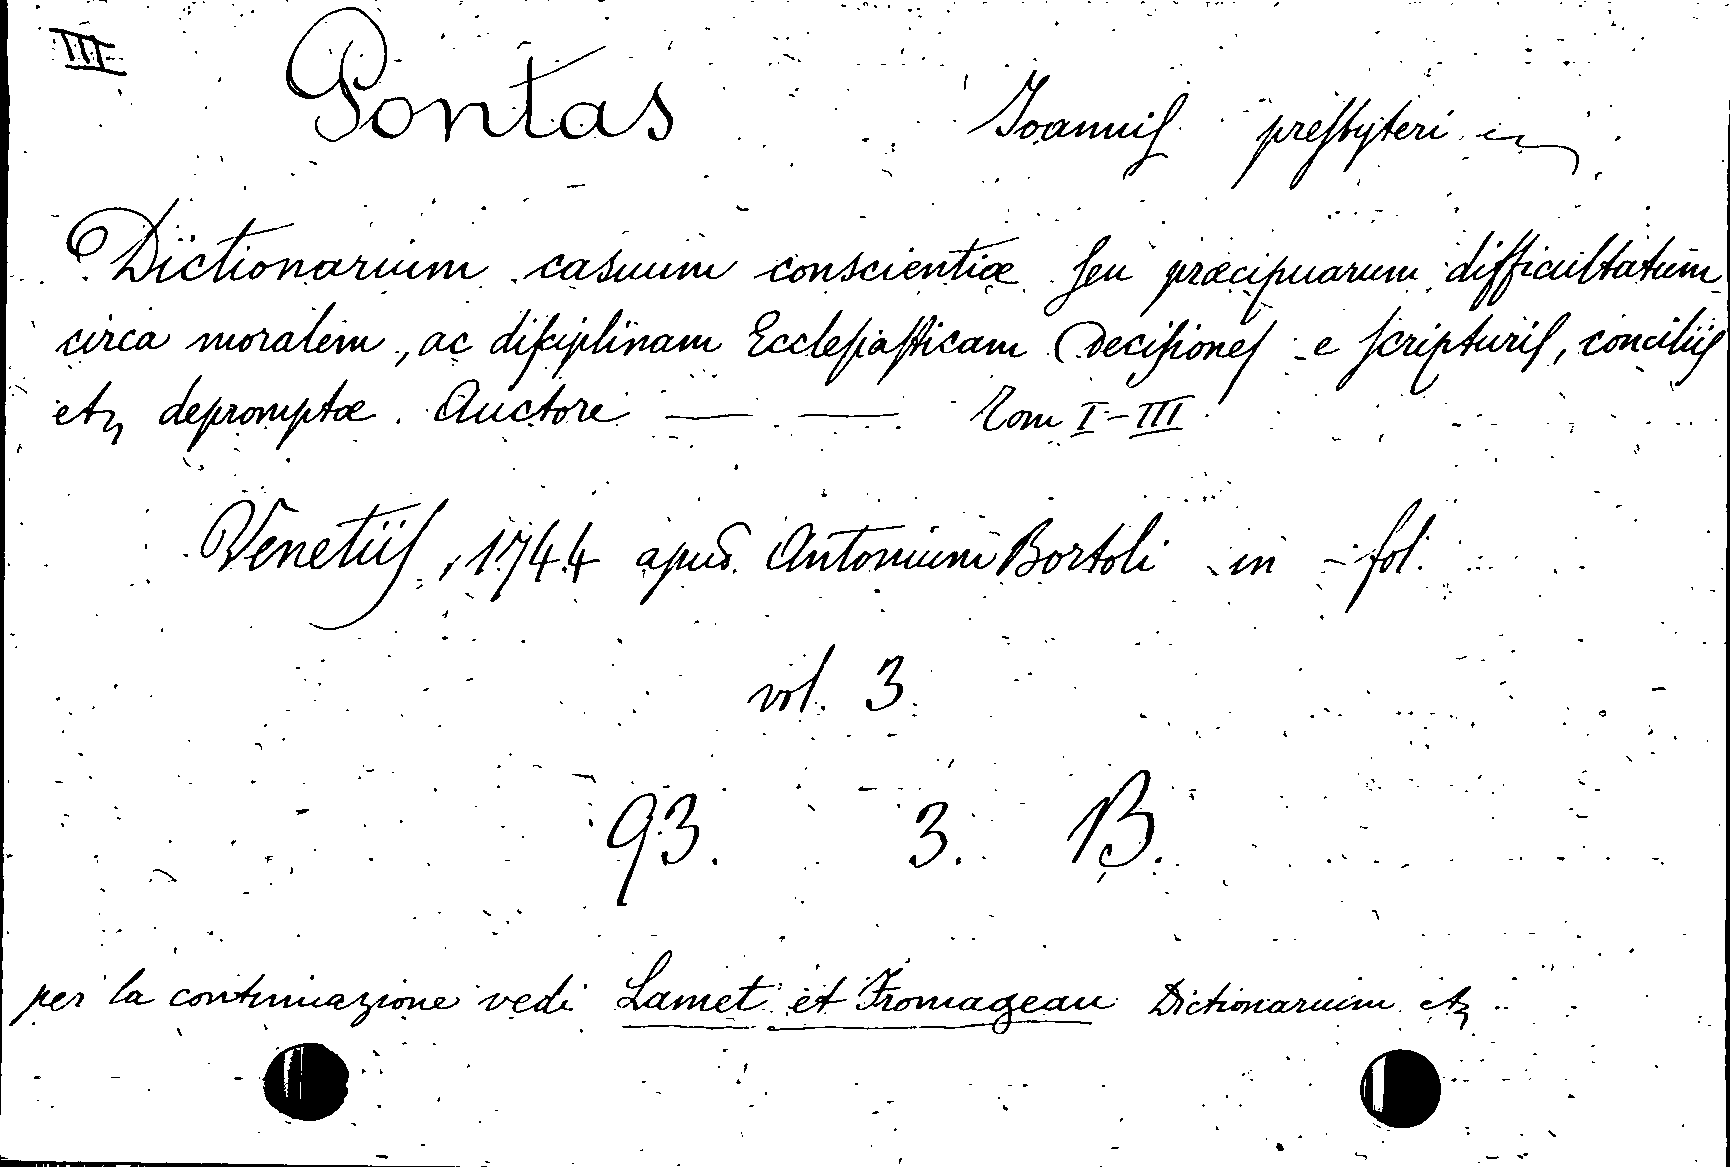 III Pontas Joannis presbyteri
Dictionarium casuum conscientiæ seu præcipuarum difficultatum
circa moralem, ac disciplinam Ecclesiasticam Decisiones e scripturis, conciliis
etc depromptæ. Auctore — — Tom I-III
Venetiis, 1744 apud Antonium Bortoli in-fol.
vol. 3.
93. 3. B.
per la continuazione vedi Lamet et Fromageau Dictionarium etc